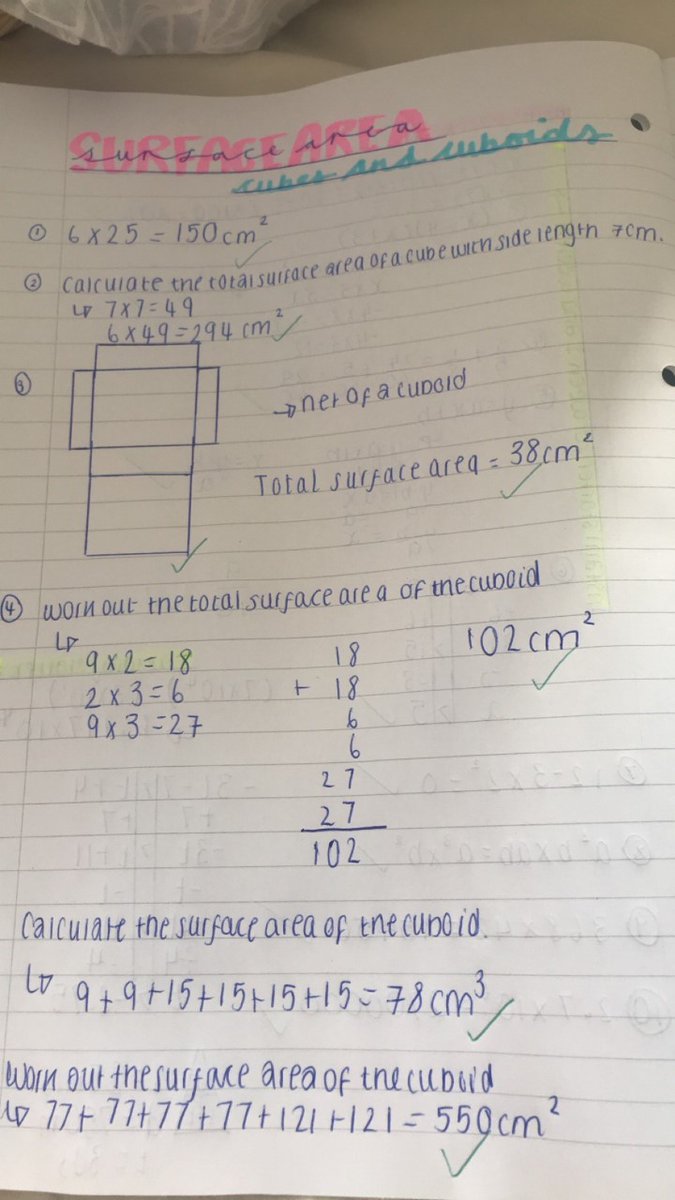 SURFACE AREA
surface area
cubes and cuboids
① 6 x 25 = 150cm²
② Calculate the total surface area of a cube with side length 7cm.
↳ 7x7=49
6 x 49 = 294 cm²
③
→ net of a cuboid
Total surface area = 38cm²
④ Work out the total surface area of the cuboid
↳
9 x 2 = 18
2 x 3 = 6
9 x 3 = 27
18
+ 18
6
6
27
27
102
102cm²
Calculate the surface area of the cuboid.
↳ 9+9+15+15+15+15 = 78cm³
Work out the surface area of the cuboid
↳ 77+77+77+77+121+121 = 550cm²